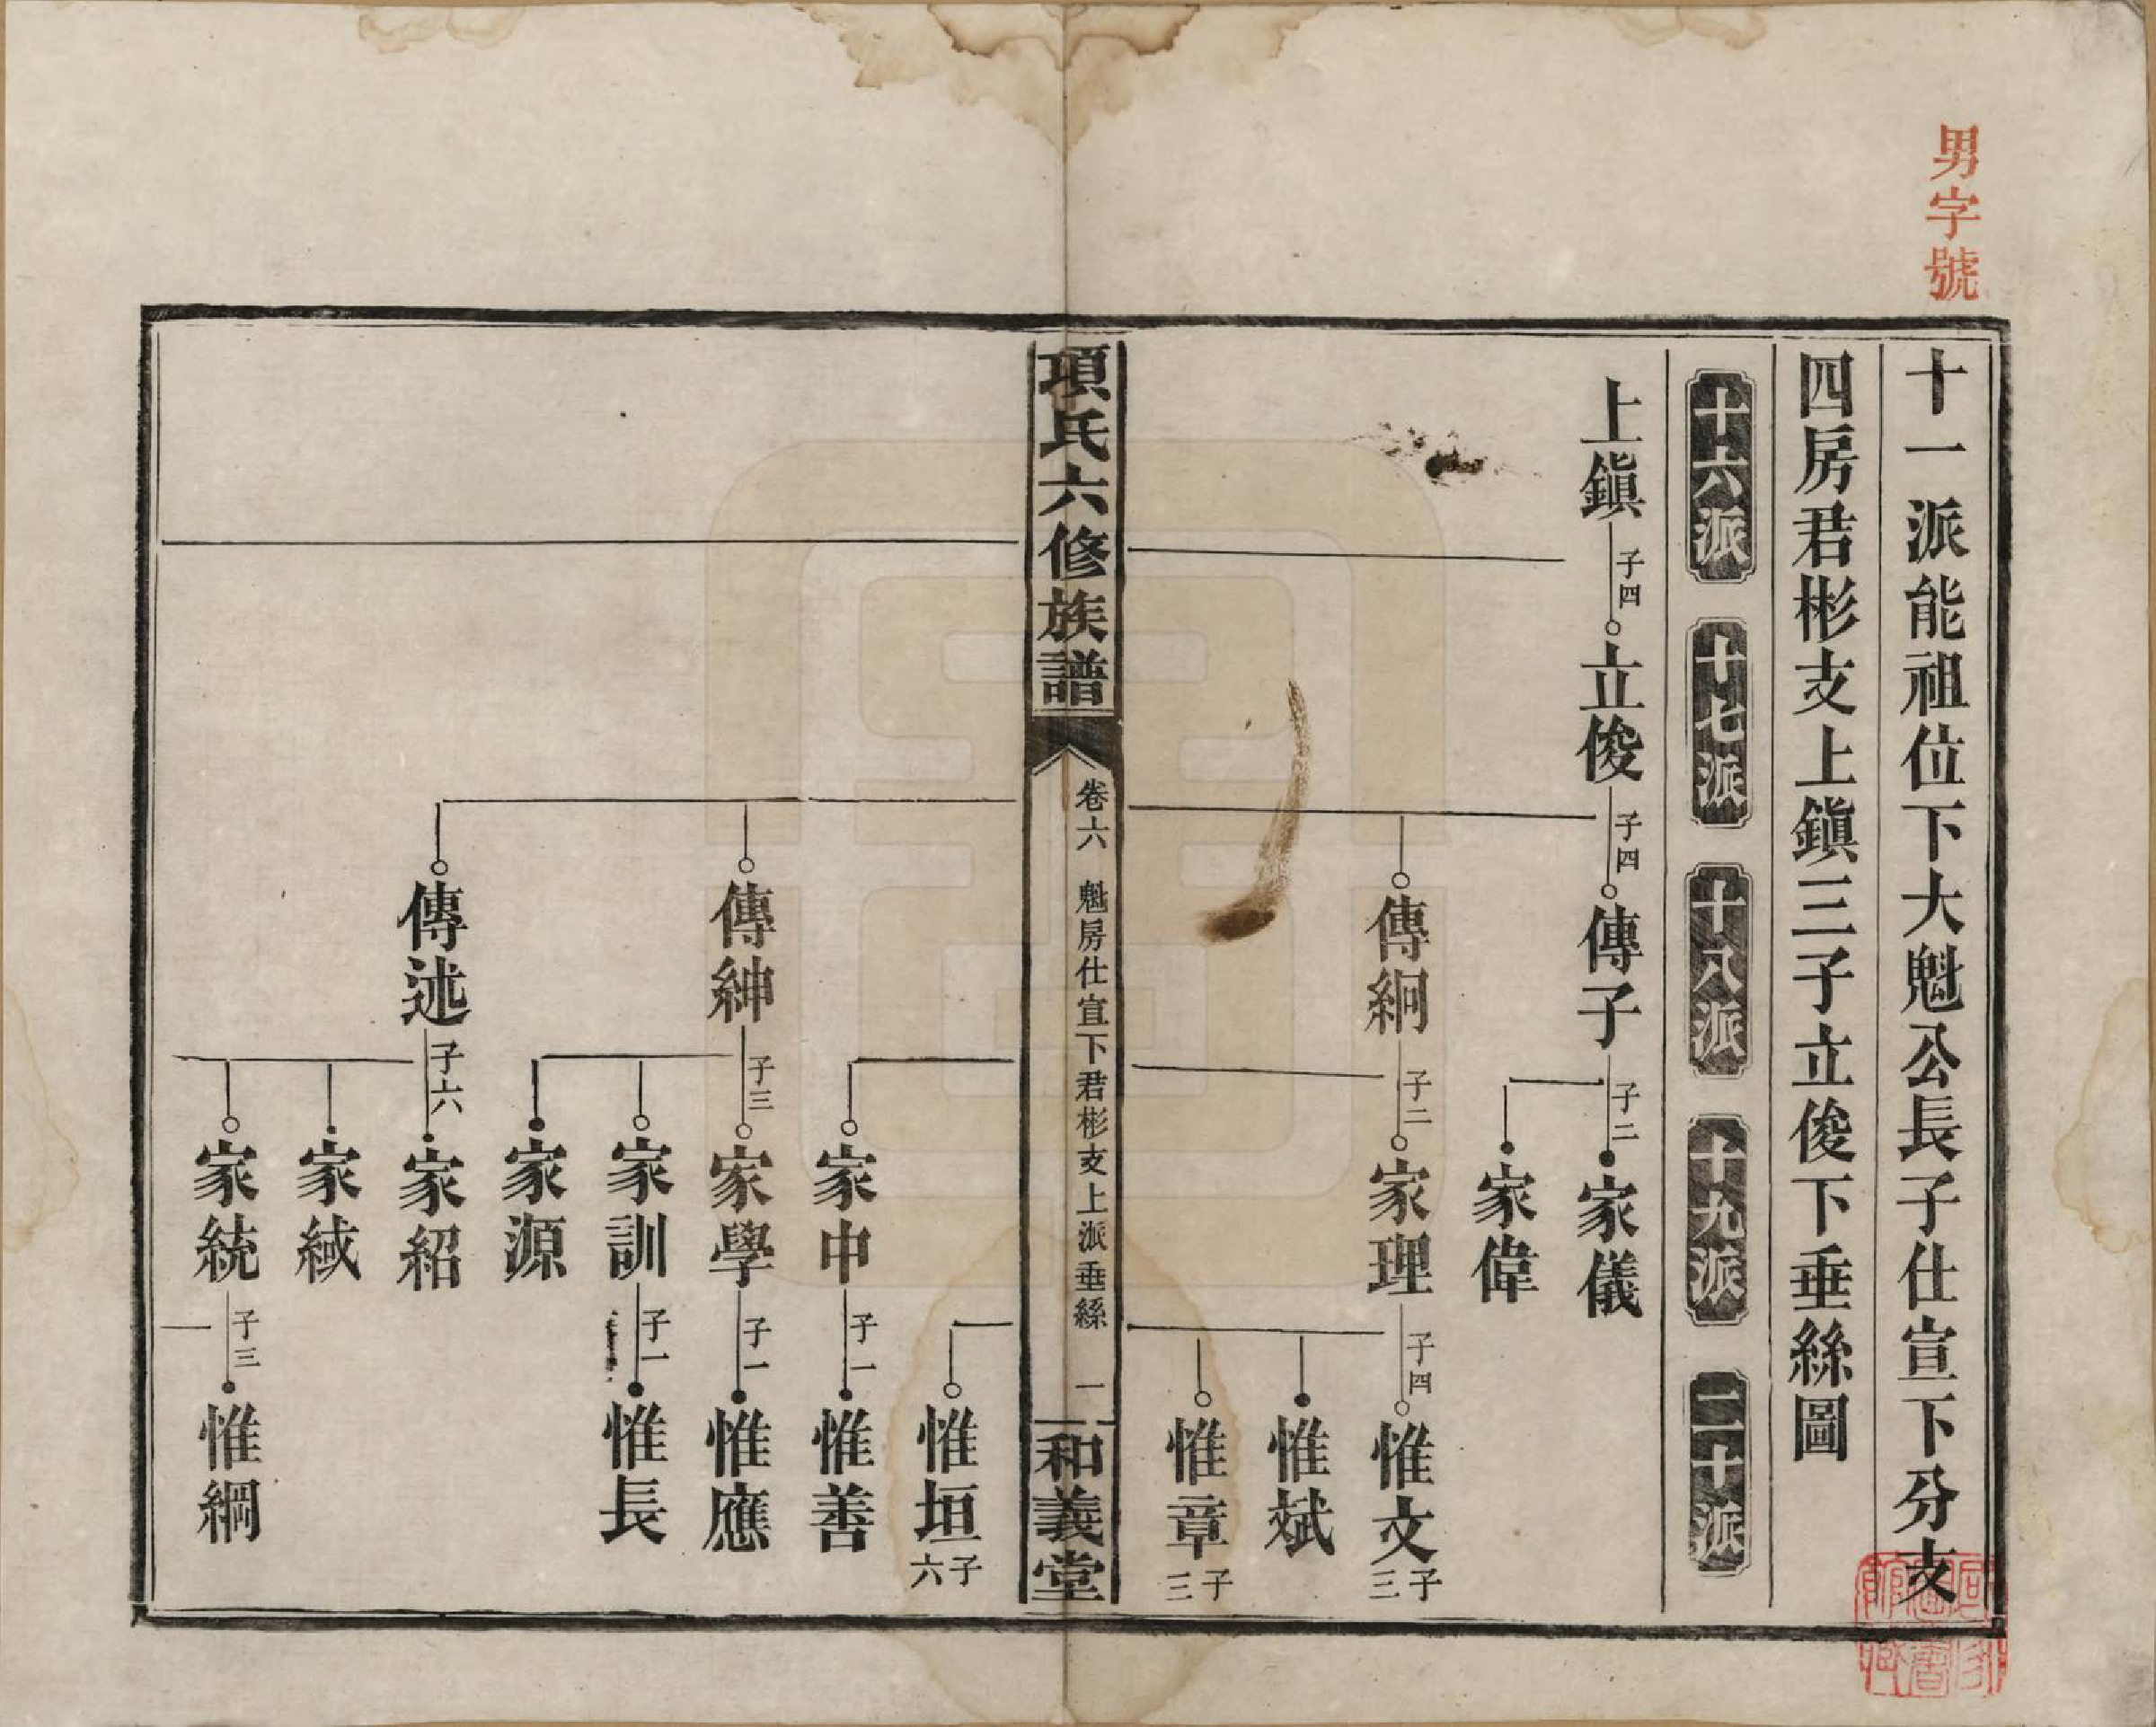 男字號
十一派能祖位下大魁公長子仕宣下分支
四房君彬支上鎭三子立俊下垂絲圖
十六派
十七派
十八派
十九派
二十派
上鎭
子四
立俊
子四
傳子
子二
家儀
家偉
傳絅
子二
家理
子四
惟文
子三
惟斌
惟章
子三
項氏六修族譜
卷六
魁房仕宣下君彬支上派垂絲
一
和義堂
惟垣
子六
家中
子一
惟善
傳紳
子三
家學
子一
惟應
家訓
子一
惟長
家源
傳述
子六
家紹
家緎
家統
子三
惟綱